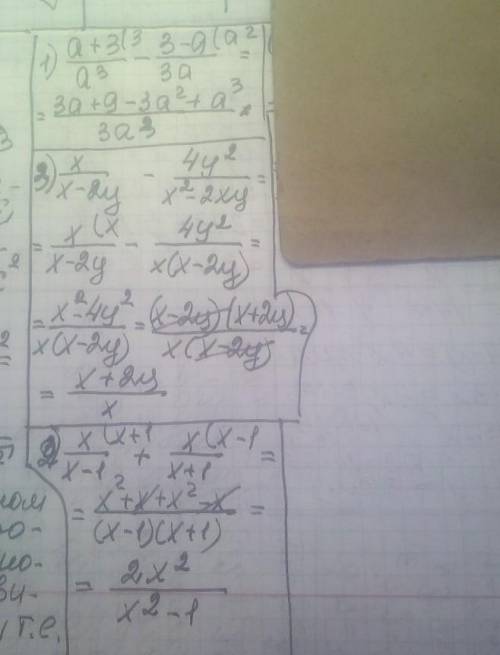 1) (a+3(3)/a³ - (3-a(a²)/3a =
= (3a+9-3a²+a³)/3a³ =
3) x/(x-2y) - 4y²/(x²-2xy) =
= x(x/(x-2y) - 4y²/(x(x-2y)) =
= (x²-4y²)/(x(x-2y)) = ((x-2y)(x+2y))/(x(x-2y)) =
= (x+2y)/x
2) x(x+1/(x-1) + x(x-1/(x+1) =
= (x²+x+x²-x)/((x-1)(x+1)) =
= 2x²/(x²-1)
т.е.